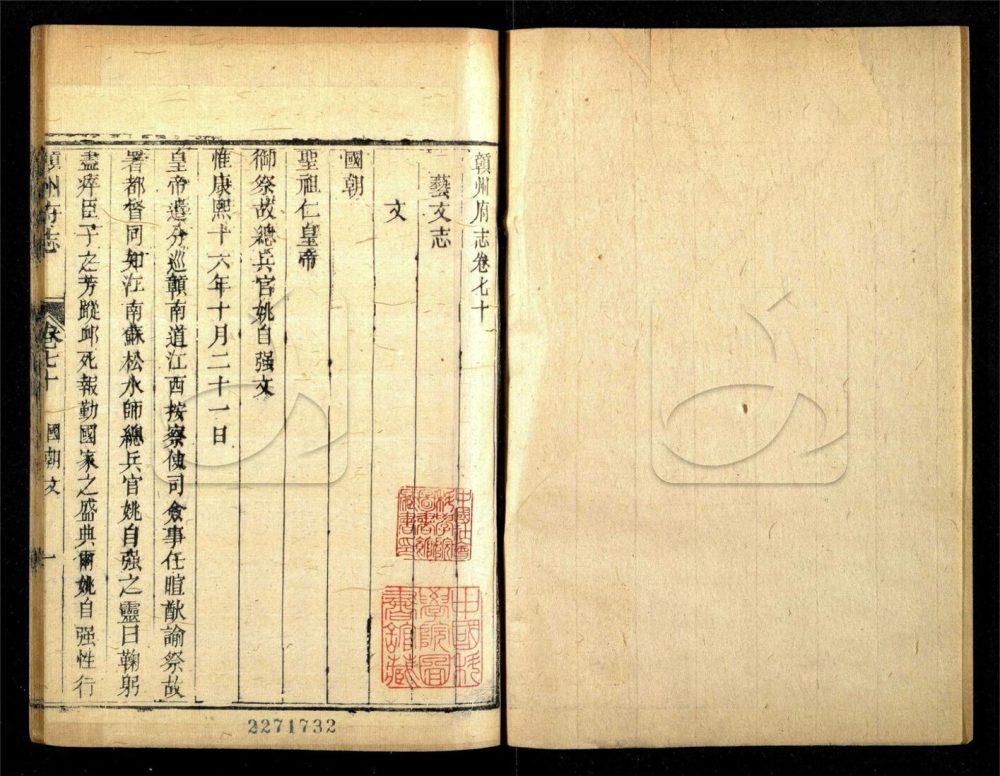 贛州府志卷七十
藝文志
文
國朝
聖祖仁皇帝
御祭故總兵官姚自强文
惟康熙十六年十月二十一日
皇帝遣分巡贛南道江西按察使司僉事任暄猷諭祭故
署都督同知江南蘇松水師總兵官姚自强之靈曰鞠躬
盡瘁臣子之芳蹤卹死報勤國家之盛典爾姚自强性行
贛州府志 卷七十 國朝文 一
中國科
學院圖
書舘藏
2271732